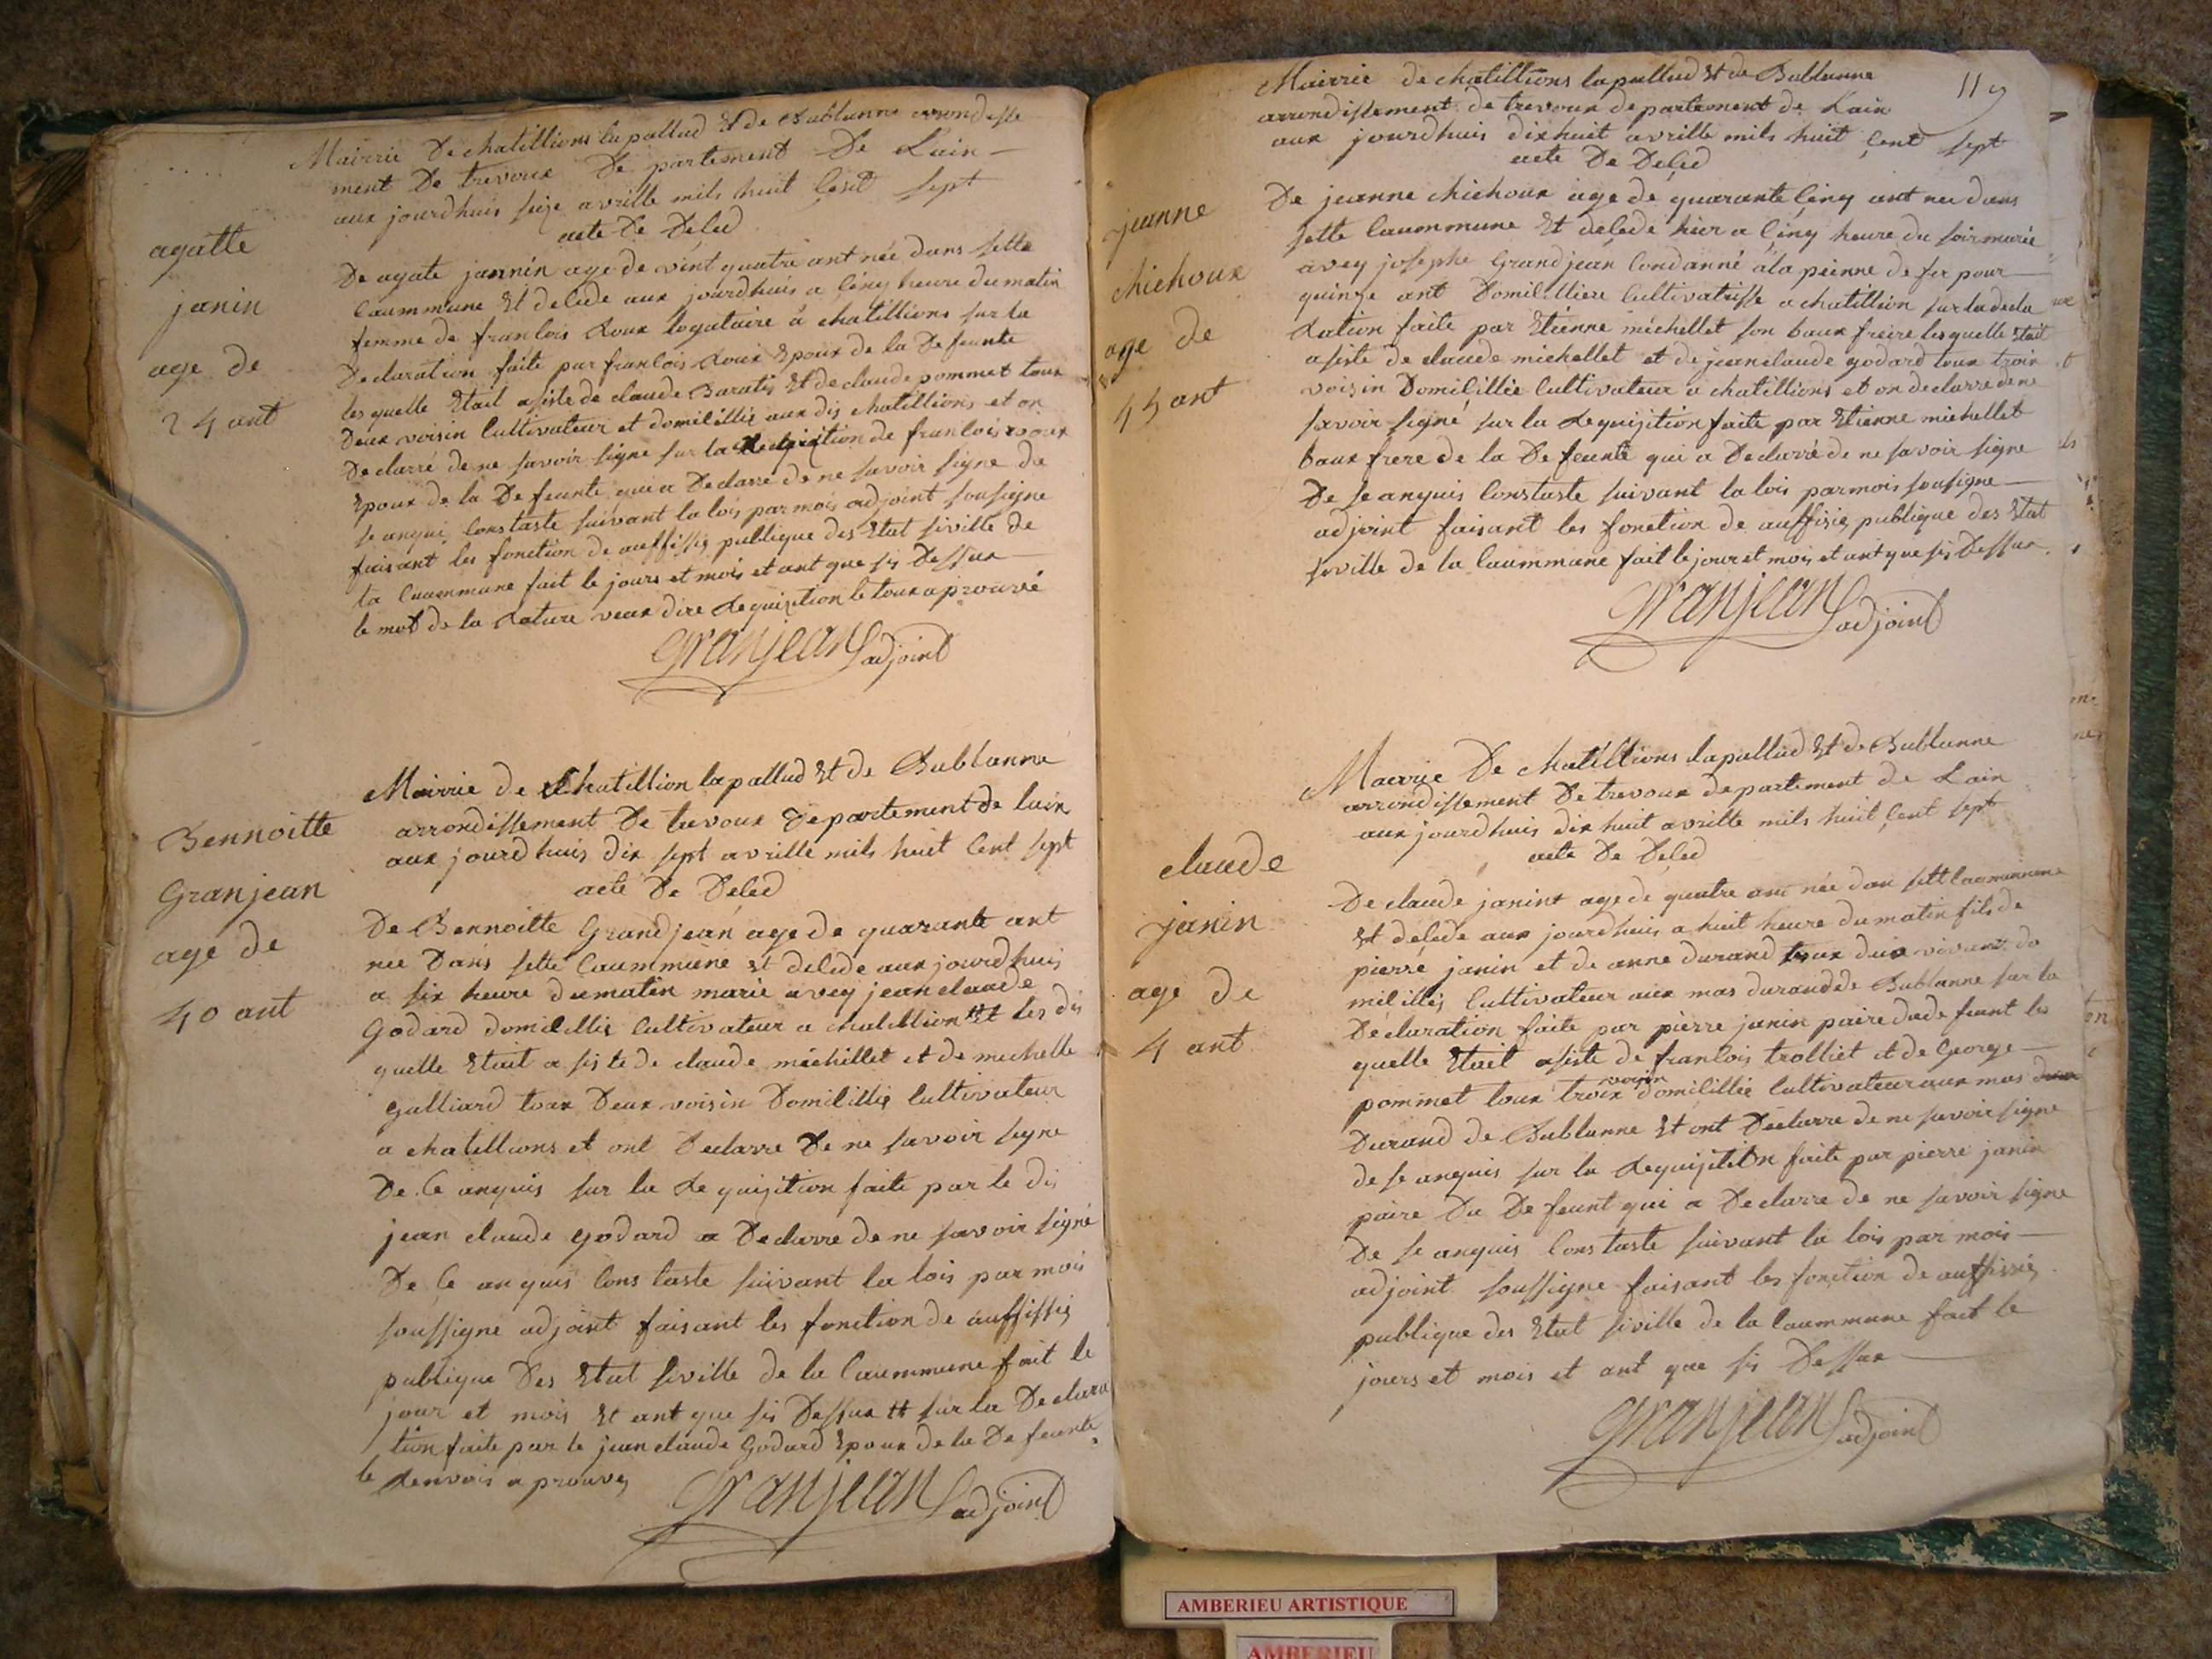 Mairrie De chatillions lapallud Et de Bublanne arrondisse
ment De trevoux De partement De Lain
aux jourdhuis seize avrille mils huit Cent sept
acte De Déced
agatte
janin
age de
24 ant
De agate jannin age de vint quatre ant née dans sette
Caummune Et decede aux jourdhuis a Cinq heure du matin
femme de francois Roux logataire à chatillions sur la
Declaration faite par francois Roux Epoux de la Defeunte
les quelle Etait asiste de claude Baratis Et de claude pommet toux
Deux voisin Cultivateur et domicillié aux dis chatillions et on
Declarré de ne savoir signe sur la Requizition de francois roux
Epoux de la Defeunte qui a Declarré de ne savoir signe de
se anqui Constaste suivant la lois par mois adjoint sousigne
faisant les fonction de auffissis publique des Etat siville de
la Caummune fait le jours et mois et ant que sis Dessux
le mot de la Rature veux dire Requizition le toux aprouvé
Granjean adjoint
Mairrie de Chatillion lapallud Et de Bublanne
arrondissement De trevoux Departement de lain
aux jourdhuis dix sept avrille mils huit Cent sept
acte De Déced
Bennoitte
Granjean
age de
40 ant
De Bennoitte Grandjean age de quarante ant
nee Dans sette Caummune Et decede aux jourdhuis
a six heure du maten marie avey jean claude
Godard domicillie Cultivateur a chatillion tt Et les dis
quelle Etait a siste de claude michillet et de michelle
galliard toux Deux voisin Domicillie Cultivateur
a chatillions et ont Declarre De ne savoir signe
De Ce anquis sur la Requizition faite par le dis
jean claude godard a Declarre de ne savoir signé
De Ce anquis Constaste suivant la lois par mois
soussigne adjoint faisant les fonction de auffissis
publique Des Etat siville de la Caummune fait le
jour et mois Et ant que sis Dessux tt sur la Declara
tion faite par le jean claude Godard Epoux de la Defeunte
le Renvois aprouvé
Granjean adjoint
119
Mairrie de chatillions lapallud Et de Bublanne
arrondissement de trevoux departement de Lain
aux jourdhuis dixhuit avrille mils huit Cent sept
acte De Déced
jeanne
chichoux
age de
45 ant
De jeanne chichoux age de quarante Cinq ant nee dans
sette Caummune Et decede hier a Cinq heure du soir marie
avey josephe Grandjean Condanné à la peinne de fer pour
quinze ant Domicilliere Cultivatrisse a chatillion sur la decla
Ration faite par Etienne michellet son baux freire les quelle Etait
asiste de claude michellet et de jean claude godard toux troix
voisin Domicillie Cultivateur a chatillions et on declarre de ne
savoir signé sur la Requisition faite par Etienne michellet
baux frere de la Defeunte qui a Declarré de ne savoir signe
De se anquis Constaste suivant la lois par mois sousigne
adjoint faisant les fonction de auffisie publique des Etat
siville de la Caummune fait le jour et mois et ant que sis Dessux
Granjean adjoint
Mairrie De chatillions lapallud Et de Bublanne
arrondissement De trevoux departement de Lain
aux jourdhuis dix huit avrille mils huit Cent sept
acte De Déced
claude
janin
age de
4 ant
De claude janint age de quatre ant née dan sett Caummune
Et décede aux jourdhuis a huit heure du matin fils de
pierre janin et de anne durand toux deux vivant do
micillié Cultivateur aux mas durand de Bublanne sur la
Declaration faite par pierre janin paire du defeunt les
quelle Etait asiste de francois trolliet et de George
pommet toux troix voisin domicillie Cultivateur aux mas
Durand de Bublanne Et ont Declarre de ne savoir signe
de se anquis sur la Requizition faite par pierre janin
paire Du Defeunt qui a Declarre de ne savoir signe
De se anquis Constaste suivant la lois par mois
adjoint soussigne faisant les fonction de auffissie
publique des Etat siville de la Caummune fait le
jours et mois et ant que sis Dessux
Granjean adjoint
AMBERIEU ARTISTIQUE
AMBERIEU